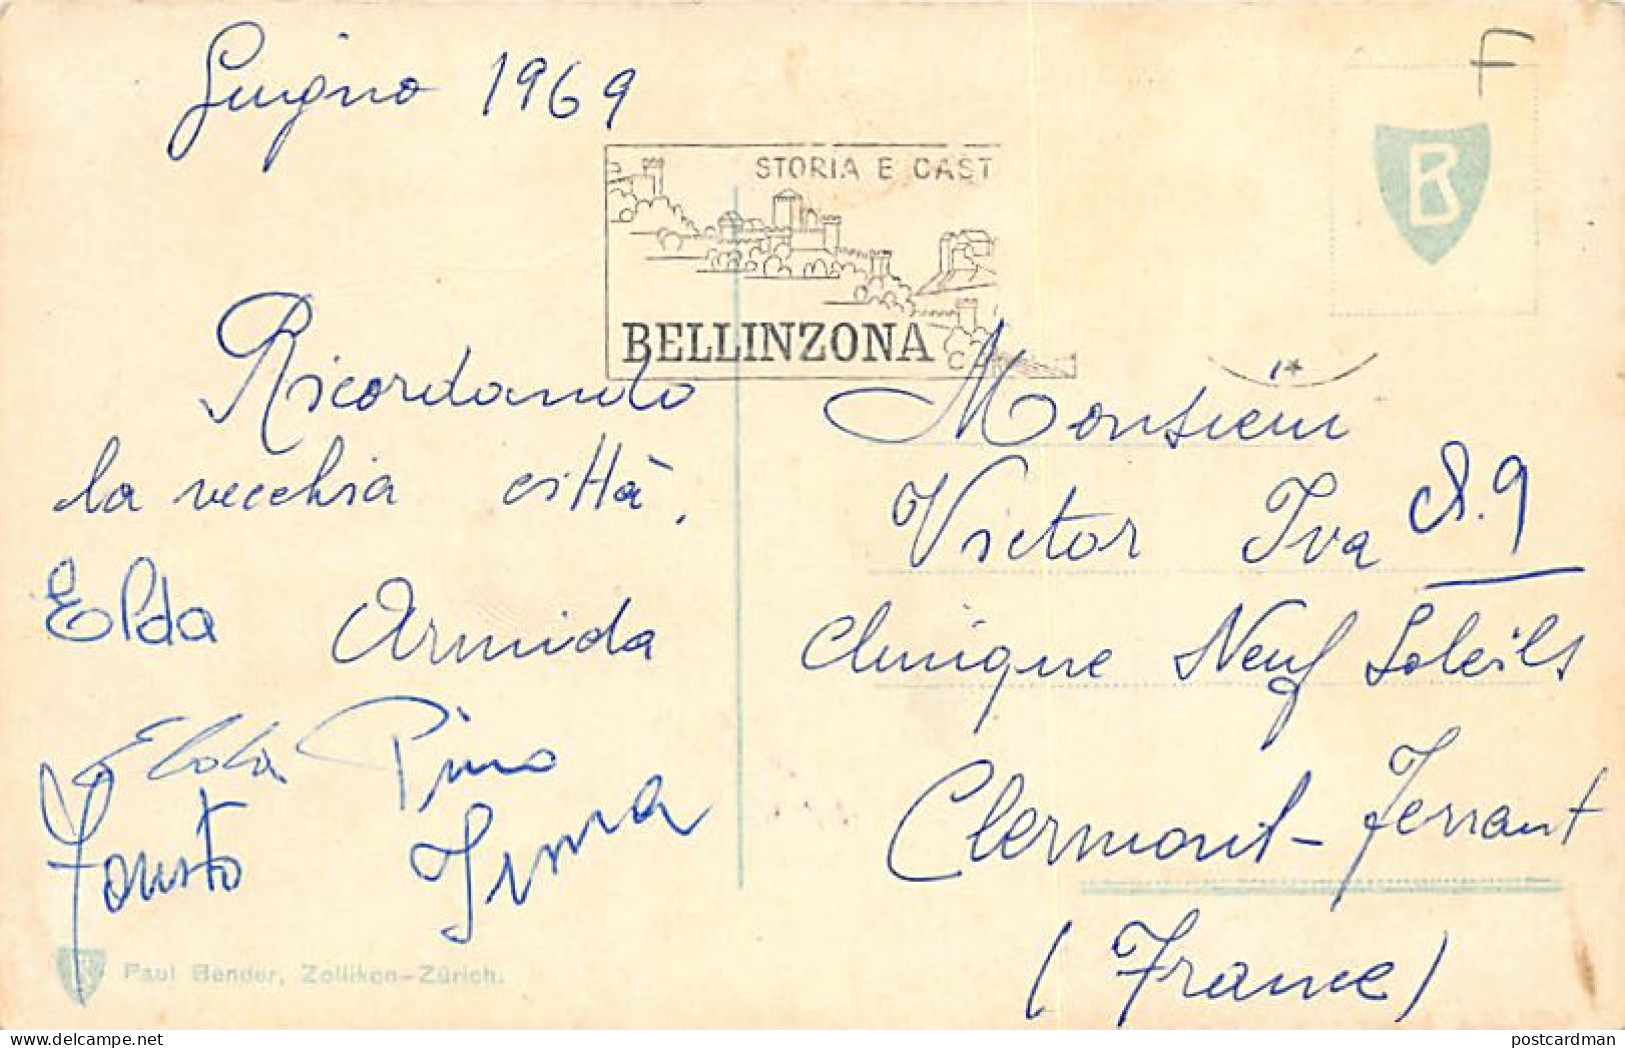 Giugno 1969
F
B
STORIA E CAST
BELLINZONA
Ricordando
la vecchia città,
Elda Armida
Elda Pino
Fausto Irma
Paul Bender, Zollikon-Zürich.
Monsieur
Victor Iva
Clinique Neuf Soleils
Clermont-Ferrant
(France)
postcardman